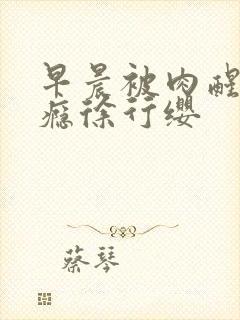 早晨被肉醒
瘾徐行缨
蔡琴